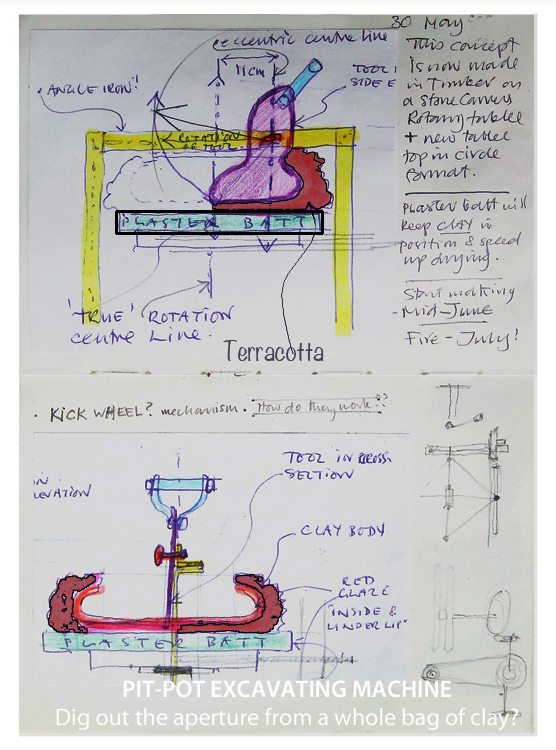 30 May
eccentric centre line
11cm
TOOL
SIDE E
ANGLE IRON!
ROTATION
OF TOOL
PLASTER BATT
'TRUE' ROTATION
centre LINE.
Terracotta
This concept
is now made
in Timber on
a Stone Carvers
Rotary table
+ new table
top in circle
format.
Plaster batt will
keep CLAY in
position & speed
up drying.
Start making
- Mid-June
Fire - July!
· KICK WHEEL? mechanism. How do they work??
IN
LEVATION
TOOL IN CROSS
SECTION
CLAY BODY
RED
GLAZE
"INSIDE &
UNDER LIP"
PLASTER BATT
PIT-POT EXCAVATING MACHINE
Dig out the aperture from a whole bag of clay?